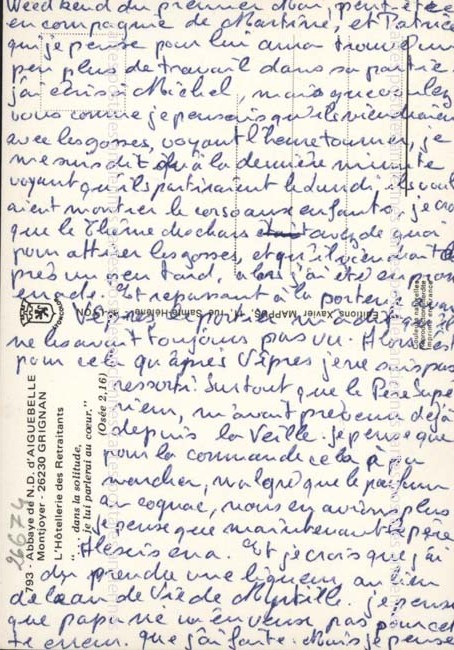 Weed kend du premier Mai, peut-être
en compagnie de Martine, et Patrice
qui je pense pour lui aura trouvé un
peu plus de travail dans sa partie.
j'ai écris à Michel, mais que voulez
vous comme je pensais qu'ils viendraient
avec les gosses, voyant l'heure tourner, je
me suis dit qu'à la dernière minute
voyant qu'ils partiraient le lundi, ils voul
aient montrer le corso aux enfants, je crois
que le thème des chars avais de quoi
pour attirer les gosses, et qu'ils viendraient
près un en tard, alors j'ai été en prom
enade. Et repassant à la porterie avant
Vêpres le portier m'a dit
ne les avait toujours pas vu. Alors c'est
pour cela qu'après Vêpres je ne suis pas
ressorti. Surtout que le Père Supé
rieur, m'avait prévenu déjà
depuis la Veille. je pense que
pour la commande cela à pu
marcher, malgré que le parfum
au cognac, nous en avions plus
je pense que maintenant le père
Alexis en a. Et je crois que j'ai
du prendre une liqueur au lieu
de l'eau de Vie de Myrtille. je pense
que papa ne m'en veux pas pour cet
te erreur. que j'ai faite. Mais je pense
793 - Abbaye de N.D. d'AIGUEBELLE
Montjoyer - 26230 GRIGNAN
L'Hôtellerie des Retraitants
"... dans la solitude,
je lui parlerai au cœur."
(Osée 2,16)
26674
Editions Xavier MAPPUS, rue Sainte-Hélène - LYON
Couleurs naturelles
Reproduction interdite
Imprimé en France